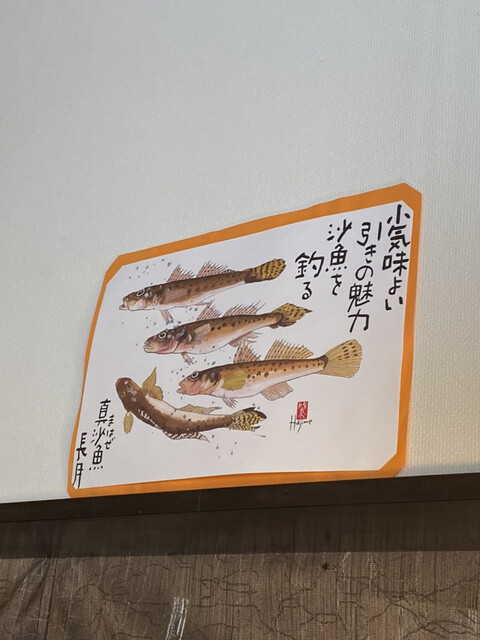 小気味よい
引きの魅力
沙魚を
釣る
まはぜ
真沙魚
長月
Hajime